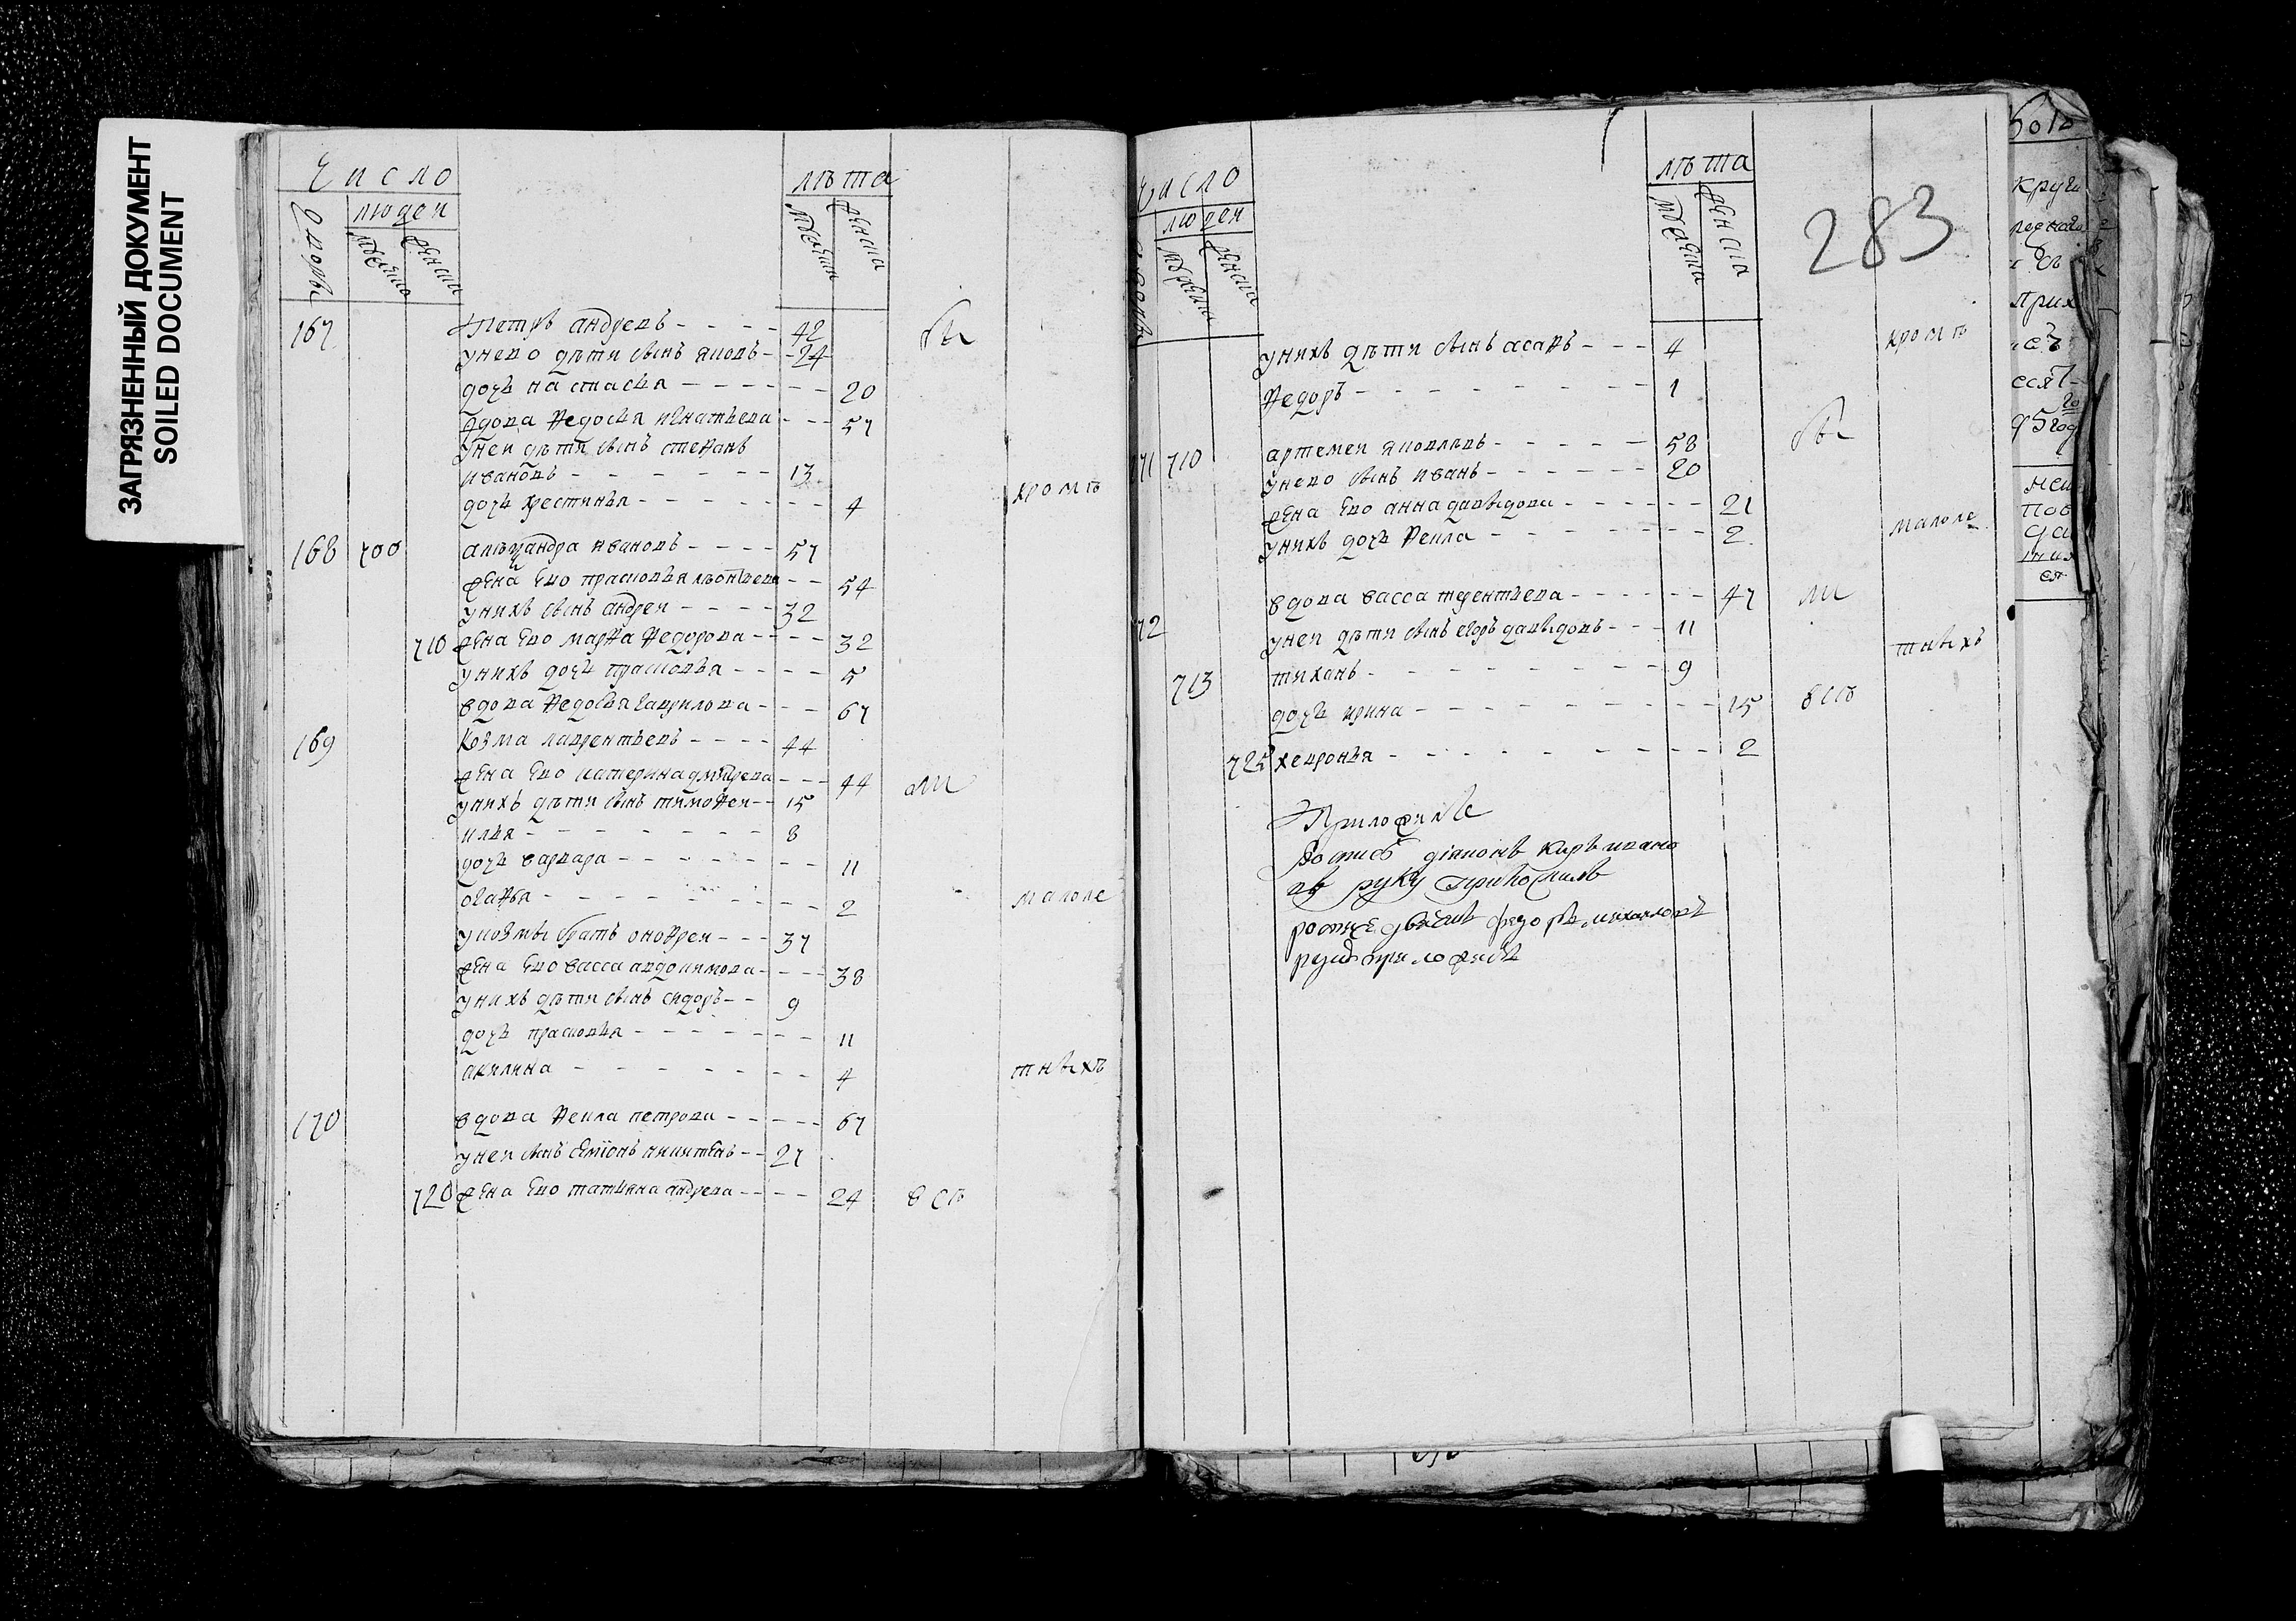 ЗАГРЯЗНЕННЫЙ ДОКУМЕНТ
SOILED DOCUMENT
Число
людеи
дворовъ
мужеска
женска
лѣта
мужеска
женска
167 Петръ андреевъ 42 бы
унево дѣти сынъ яковъ 24
дочь настасья 20
вдова Ѳедосья игнатьева 57
унеи дѣти сынъ степанъ
ивановъ 13
дочь хрестинья 4 кромѣ
168 700 александра ивановъ 57
жена ево прасковья леонтьева 54
унихъ сынъ андреи 32
710 жена ево марѲа Ѳедорова 32
унихъ дочь прасковья 5
вдова Ѳедосья гаврилова 67
169 козма лаврентьевъ 44
жена ево катерина дмитрева 44 ли
унихъ дѣти сынъ тимоѲеи 15
илья 8
дочь варвара 11
огаѲья 2 малоле
укозмы братъ оноѲреи 37
жена ево васса авдокимова 38
унихъ дѣти сынъ сидоръ 9
дочь прасковья 11
акилина 4 тныхъ
170 вдова Ѳекла петрова 67
унеи сынъ семіонъ никитинъ 27
720 жена ево татьяна андреева 24 всѣ
Число
людеи
мужеска
женска
лѣта
мужеска
женска
283
унихъ дѣти сынъ асаѲъ 4 кромѣ
Ѳедоръ 1
171 710 артемеи яковлевъ 58 бы
унево сынъ иванъ 20
жена ево анна давыдова 21
унихъ дочь Ѳекла 2 малоле
вдова васса терентьева 47 ли
72 унеи дѣти сынъ егоръ давыдовъ 11
тныхъ
713 тихонъ 9
дочь ирина 15 всѣ
725 хевронья 2
Приложилъ
роспись діяконъ карпъ иванов
руку приложилъ
дьячекъ федоръ михаиловъ
руку приложилъ